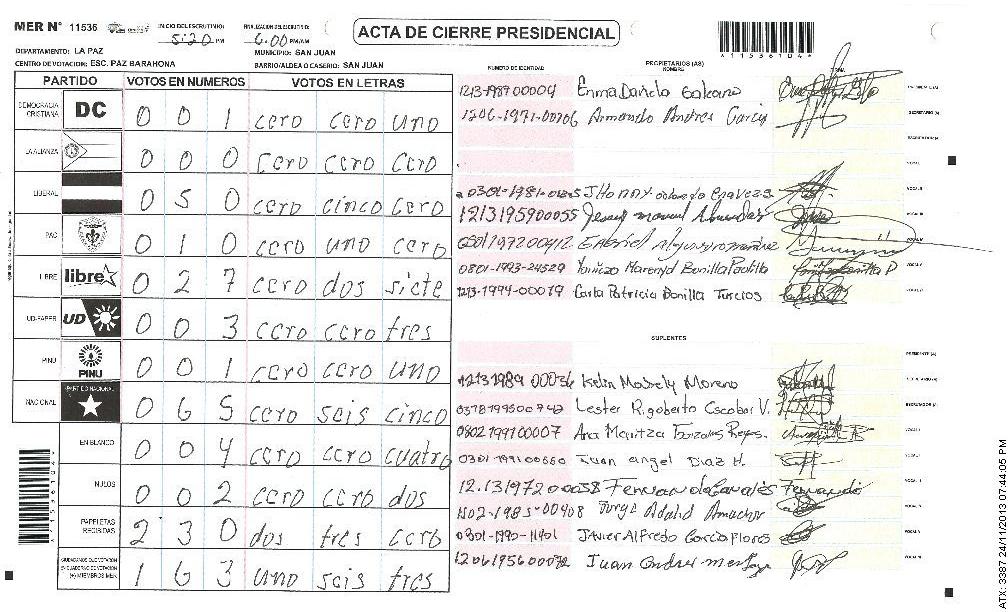 MER N° 11536 INICIO DEL ESCRUTINIO: 5:20 PM FINALIZACION DEL ESCRUTINIO: 6:00 PM/AM
ACTA DE CIERRE PRESIDENCIAL
DEPARTAMENTO: LA PAZ MUNICIPIO: SAN JUAN
CENTRO DE VOTACION: ESC. PAZ BARAHONA BARRIO/ALDEA O CASERIO: SAN JUAN
PARTIDO VOTOS EN NUMEROS VOTOS EN LETRAS
DEMOCRACIA CRISTIANA DC 0 0 1 cero cero uno
LA ALIANZA 0 0 0 cero cero cero
LIBERAL 0 5 0 cero cinco cero
PAC 0 1 0 cero uno cero
LIBRE libre 0 2 7 cero dos siete
UD-FAPER UD 0 0 3 cero cero tres
PINU PINU 0 0 1 cero cero uno
NACIONAL PARTIDO NACIONAL 0 6 5 cero seis cinco
EN BLANCO 0 0 4 cero cero cuatro
NULOS 0 0 2 cero cero dos
PAPELETAS RECIBIDAS 2 3 0 dos tres cero
1 6 3 uno seis tres
NUMERO DE IDENTIDAD PROPIETARIOS (AS)
NOMBRE FIRMA
1213-1989 00004 Enma Daniela Galeano
1206-1971-00706 Armando Andres Garcia
J Honny orlando Chavez
1213195900055
0801-1993-24529 Bonilla Padilla
1213-1994-00079 Carla Patricia Bonilla Turcios
SUPLENTES
12131989 00036 Kelin Mabely Moreno
Lester Rigoberto Escobar V.
0802199100007 Ana Maritza Reyes.
Juan angel Diaz H.
Fernando
1502-1985-00908 Jorge Adalid
Javier Alfredo Garcia Flores
Juan
ATX: 3387 24/11/2013 07:44:05 PM